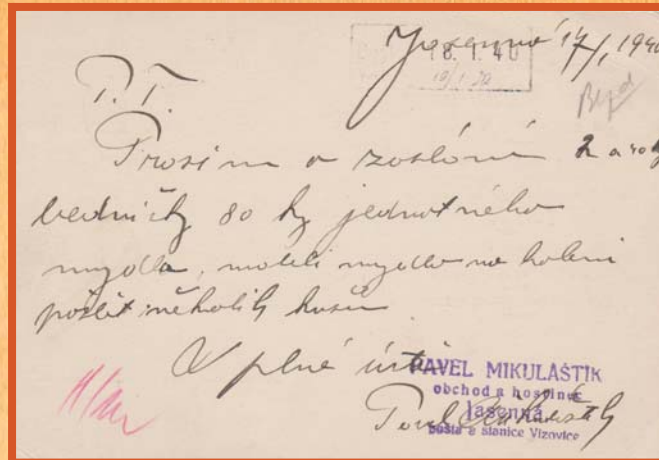 Jasenná 17/1, 1940
18. 1. 40
19/1 70
P. T.
Prosím o zaslání 2
bedničky 80 kg jednotného
mydla, máteli mydlo na holení
pošlete několik kusů
V plné úctě
PAVEL MIKULAŠTÍK
obchod a hostinec
Jasenná
pošta a stanice Vizovice
Pavel Mikulaštík